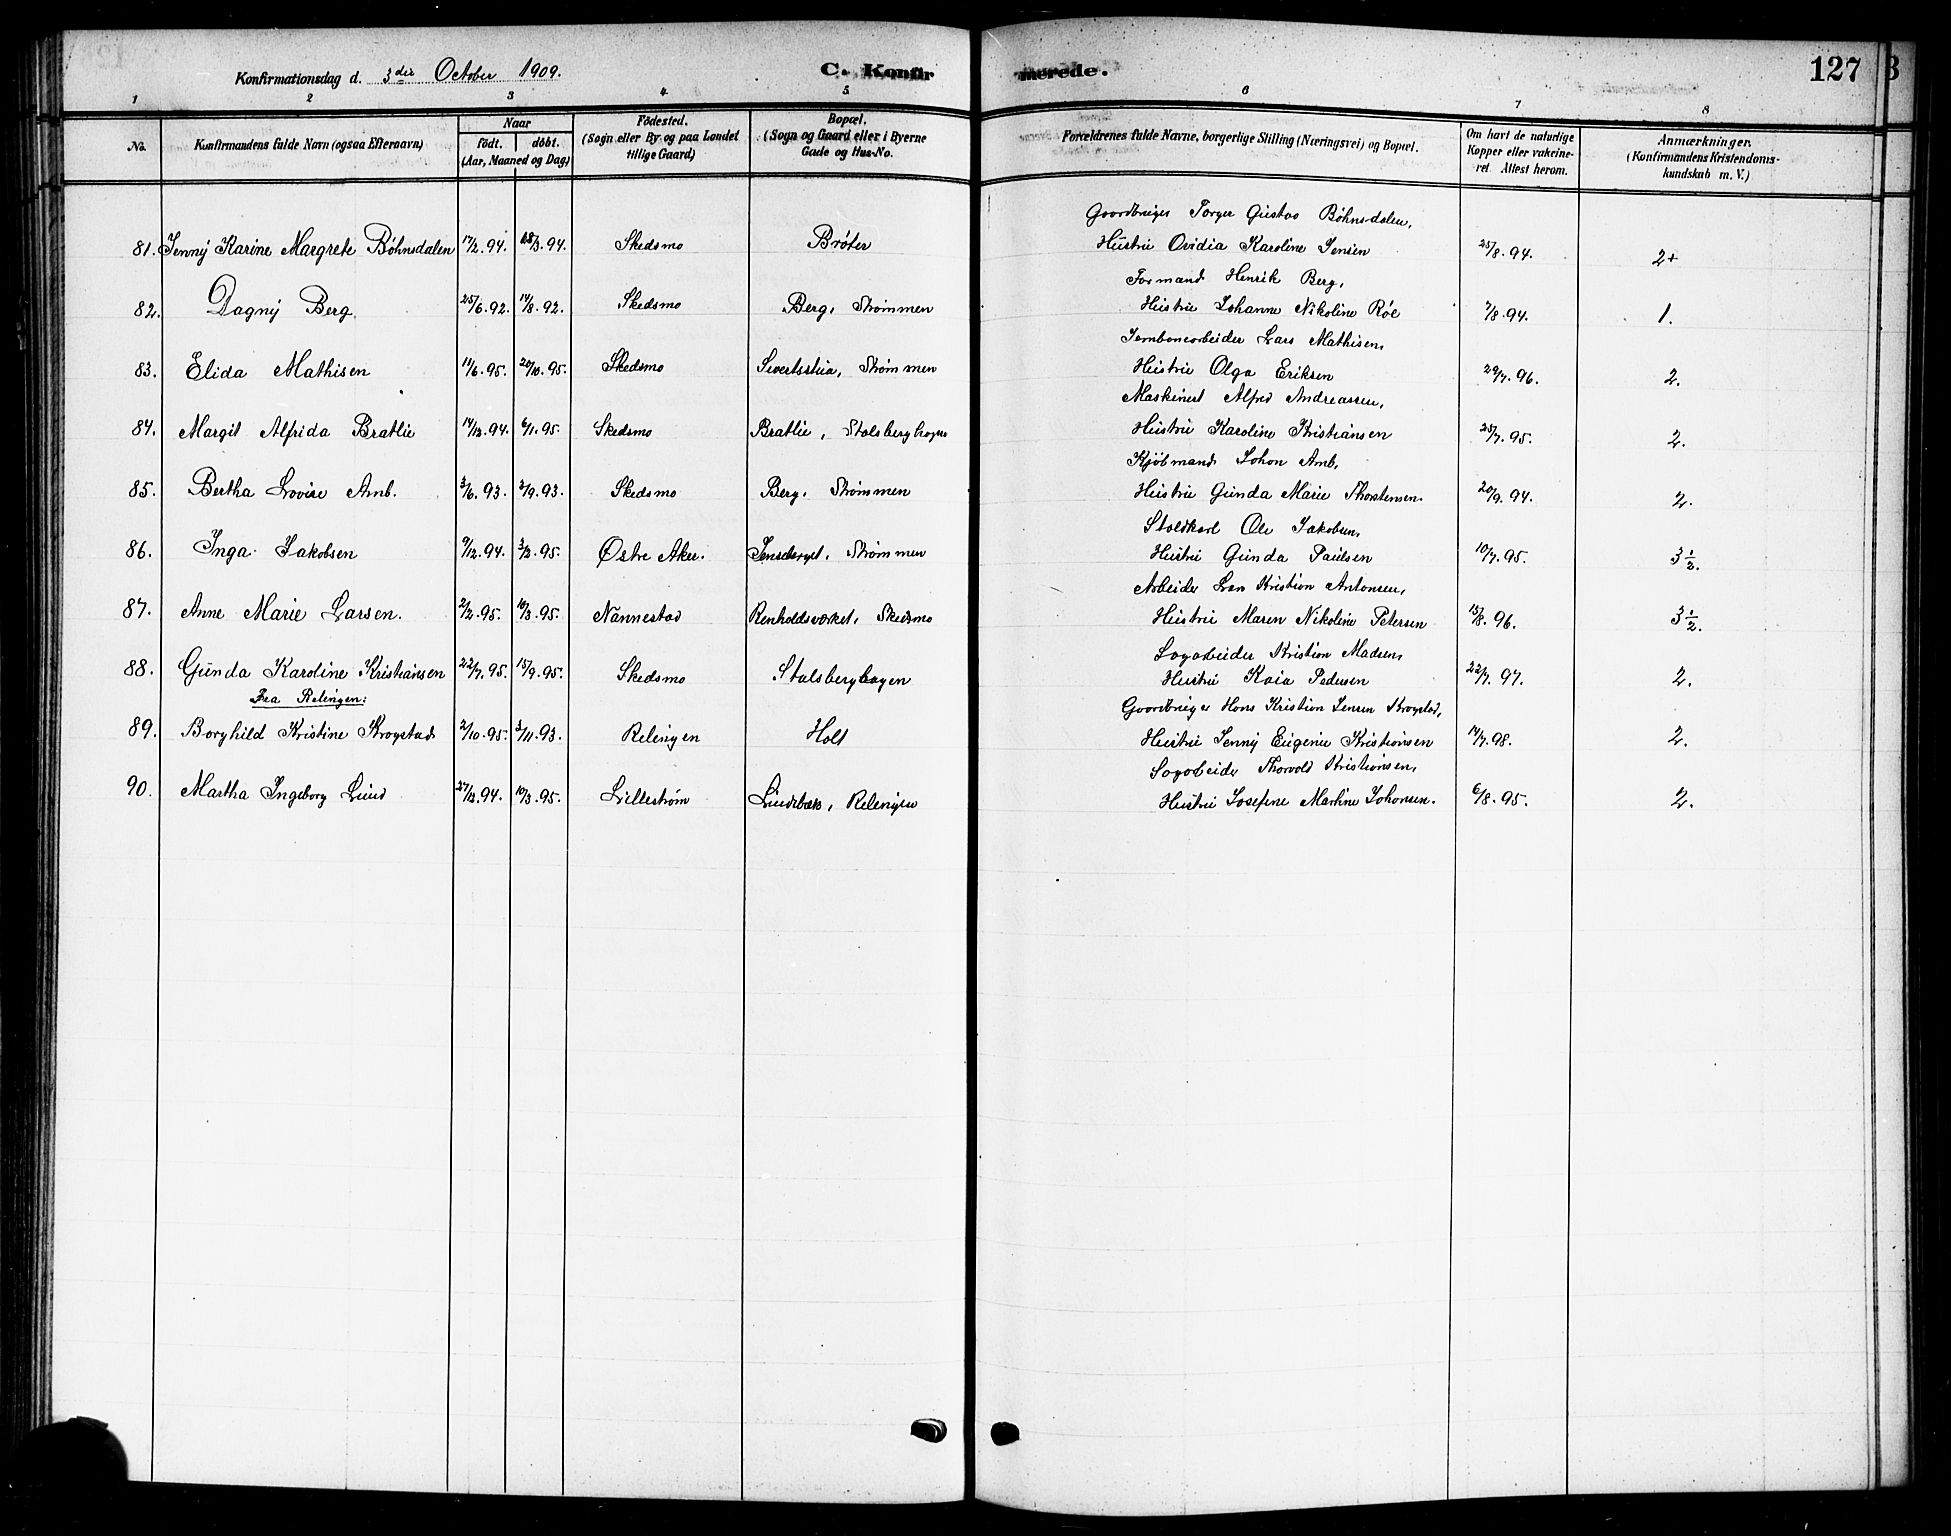 Konfirmationsdag d. 3die October 1909. C. Konfirmerede. 127
1 2 3 4 5 6 7 8
No. Konfirmandens fulde Navn (ogsaa Efternavn) Naar födt. döbt. (Aar, Maaned og Dag) Födested. (Sogn eller By og paa Landet tillige Gaard) Bopæl. (Sogn og Gaard eller i Byerne Gade og Hus-No. Forældrenes fulde Navne, borgerlige Stilling (Næringsvei) og Bopæl. Om havt de naturlige Kopper eller vakcineret. Attest herom. Anmærkninger. (Konfirmandens Kristendomskundskab m. V.)
Gaardbruger Torger Gustav Bøhnsdalen,
81. Jenny Karine Margrete Bøhnsdalen 17/2.94. 25/3.94. Skedsmo Bröter Hustru Ovidia Karoline Jensen 25/8.94. 2+
Formand Henrik Berg,
82. Dagny Berg. 25/6.92. 14/8.92. Skedsmo Berg, Strømmen Hustru Johanne Nikoline Röe 7/8.94. 1.
Jernbanearbeider Lars Mathisen,
83. Elida Mathisen 11/6.95. 20/10.95. Skedsmo Sivertsstua, Strømmen Hustru Olga Eriksen 29/7.96. 2.
Maskinert Alfred Andreassen,
84. Margit Alfrida Bratlie 14/12.94. 6/1.95. Skedsmo Bratlie, Stalsberghagen Hustru Karoline Kristiansen 25/7.95. 2.
Kjöbmand Johan Amb,
85. Bertha Lovise Amb. 3/6.93. 3/9.93. Skedsmo Berg, Strømmen Hustru Gunda Marie Thorstensen. 20/9.94. 2.
Staldkarl Ole Jakobsen,
86. Inga Jakobsen 9/12.94. 3/3.95. Østre Aker. Strømmen Hustru Gunda Paulsen 10/7.95. 3 1/2.
Arbeider Kristian Antonsen,
87. Anne Marie Larsen. 2/2.95. 10/3.95. Nannestad Renholdsverket, Skedsmo Hustru Maren Nikoline Petersen 15/8.96. 3 1/2.
Sagarbeider Kristian Madsen,
88. Gunda Karoline Kristiansen 22/7.95. 15/9.95. Skedsmo Stalsberghagen Hustru Kaia Pedersen 22/7.97. 2.
Fra Relingen:
Gaardbruger Hans Kristian Jensen Krogstad,
89. Borghild Kristine Krogstad 2/10.95. 3/11.93. Relingen Holt Hustru Jenny Eugenie Kristiansen 14/7.98. 2.
Sagarbeider Thorvald Kristiansen,
90. Martha Ingeborg Lund 27/12.94. 10/3.95. Lillestrøm Lundsbæk, Relingen Hustru Josefine Martine Johansen. 6/8.95. 2.